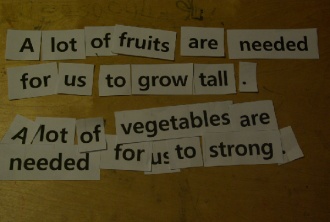 A lot of fruits are needed
for us to grow tall .
A lot of vegetables are
needed for us to strong .